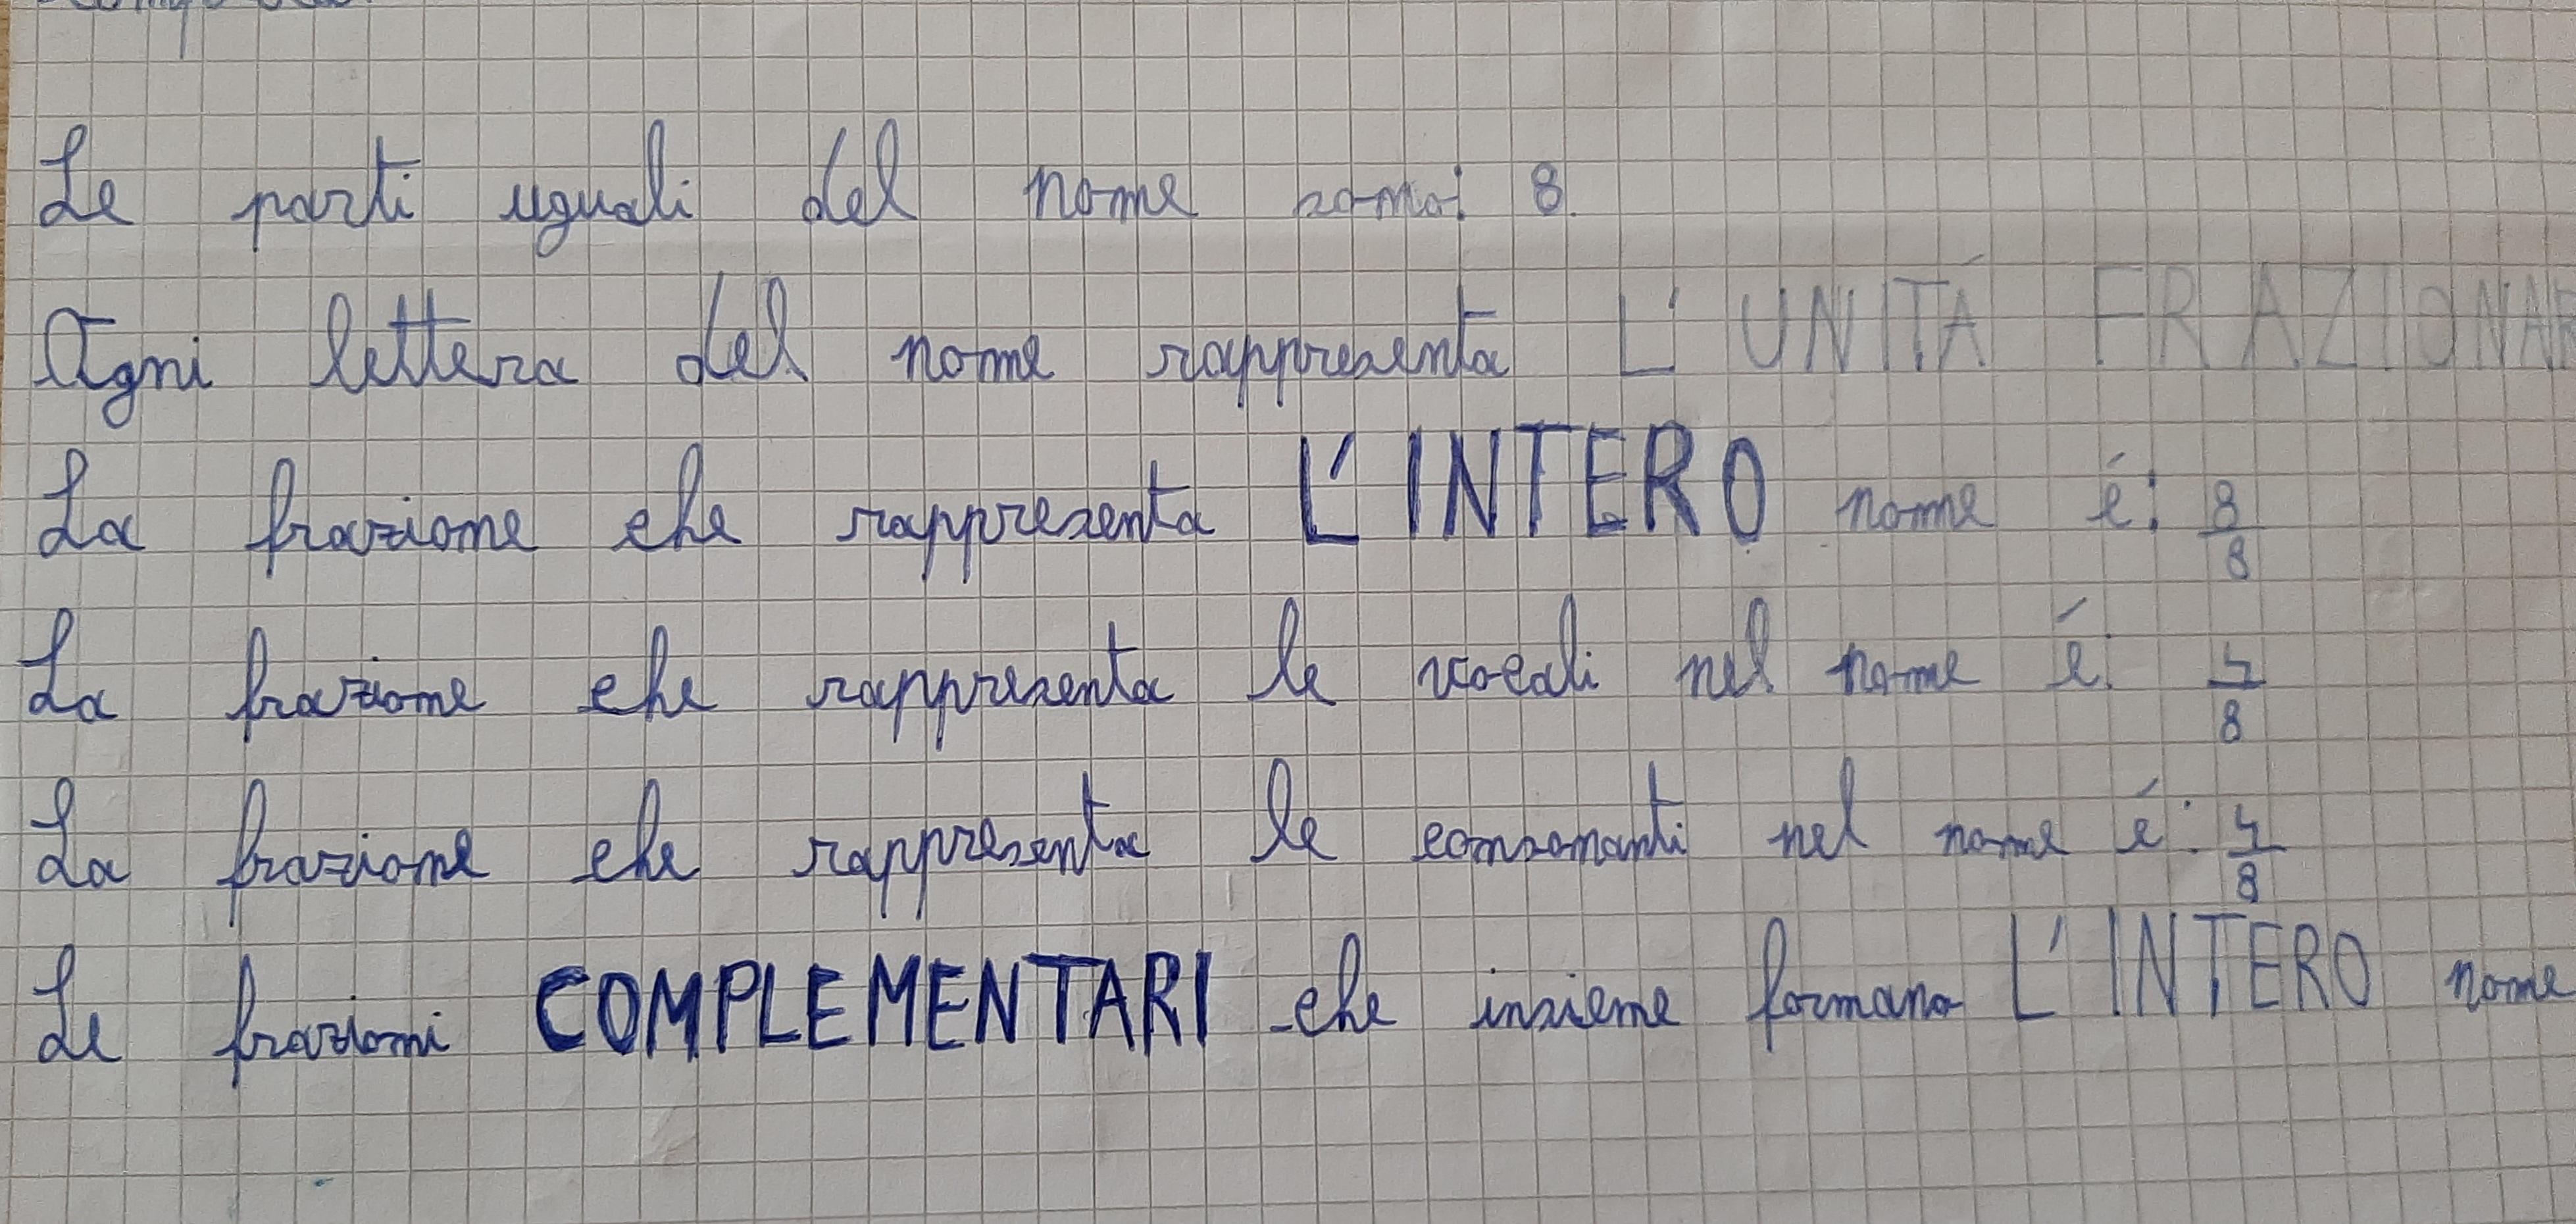 Le parti uguali del nome sono: 8.
Ogni lettera del nome rappresenta L'UNITÁ FRAZIONAR
La frazione che rappresenta L'INTERO nome é: 8/8
La frazione che rappresenta le vocali nel nome é: 4/8
La frazione che rappresenta le consonanti nel nome é: 4/8
Le frazioni COMPLEMENTARI che insieme formano L'INTERO nome